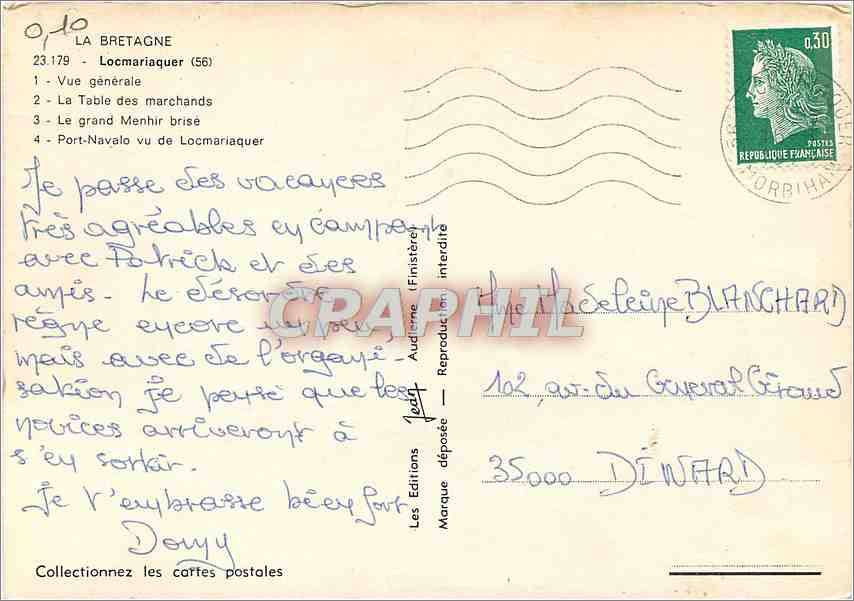 0,10
LA BRETAGNE
23.179 - Locmariaquer (56)
1 - Vue générale
2 - La Table des marchands
3 - Le grand Menhir brisé
4 - Port-Navalo vu de Locmariaquer
Je passe des vacances
très agréables en campant
avec Patrick et des
amis. Le désordre
règne encore un peu,
mais avec de l'organi-
sation je pense que les
novices arriveront à
s'en sortir.
Je t'embrasse bien fort
Domy
Collectionnez les cartes postales
Les Editions Jean Audierne (Finistère)
Marque déposée — Reproduction interdite
0,30
POSTES
REPUBLIQUE FRANÇAISE
MORBIHAN
Mme Madeleine BLANCHARD
102, av. du General Giraud
35000 DINARD
CRAPHIL